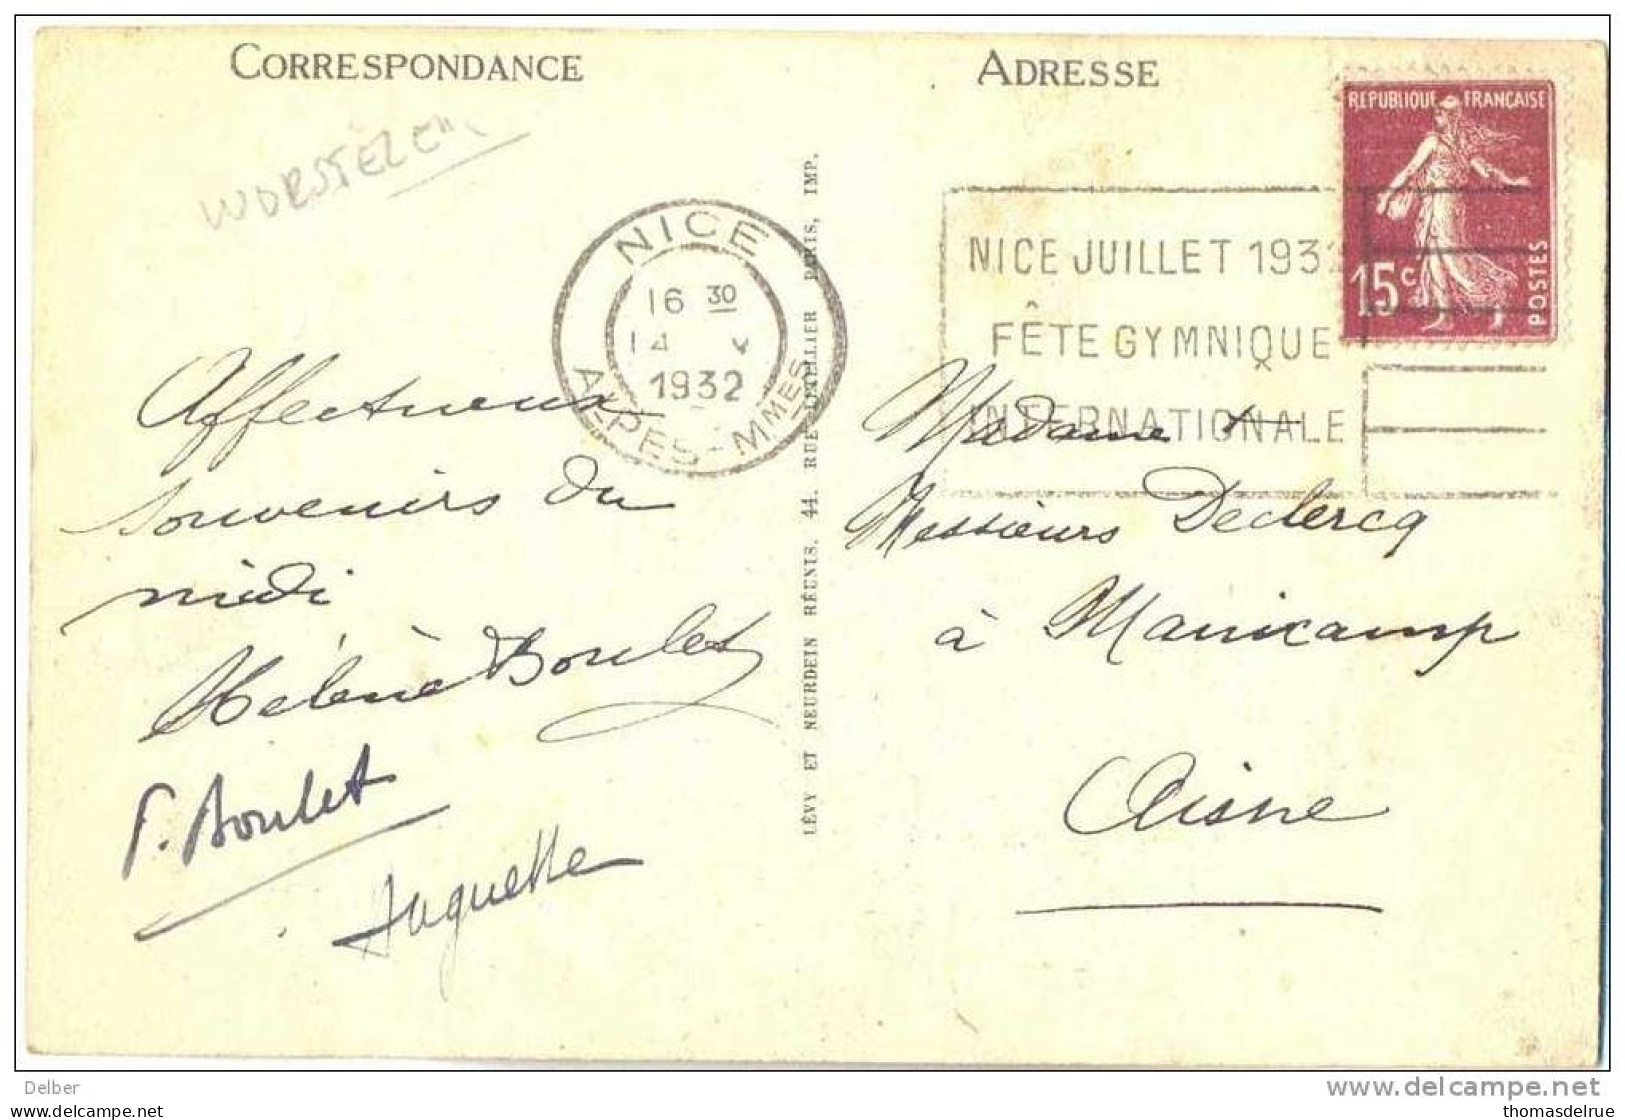 CORRESPONDANCE
ADRESSE
REPUBLIQUE FRANÇAISE
15c
POSTES
NICE
16 30
14 V
1932
ALPES-MMES
NICE JUILLET 1932
FÊTE GYMNIQUE
INTERNATIONALE
Affectueux
souvenirs du
midi
Hélène Boulet
P. Boulet
Huguette
LÉVY ET NEURDEIN RÉUNIS. 44. RUE LETELLIER PARIS, IMP.
Madame &
Messieurs Declercq
à Manicamp
Aisne
Delber
delcampe.net
thomasdelrue